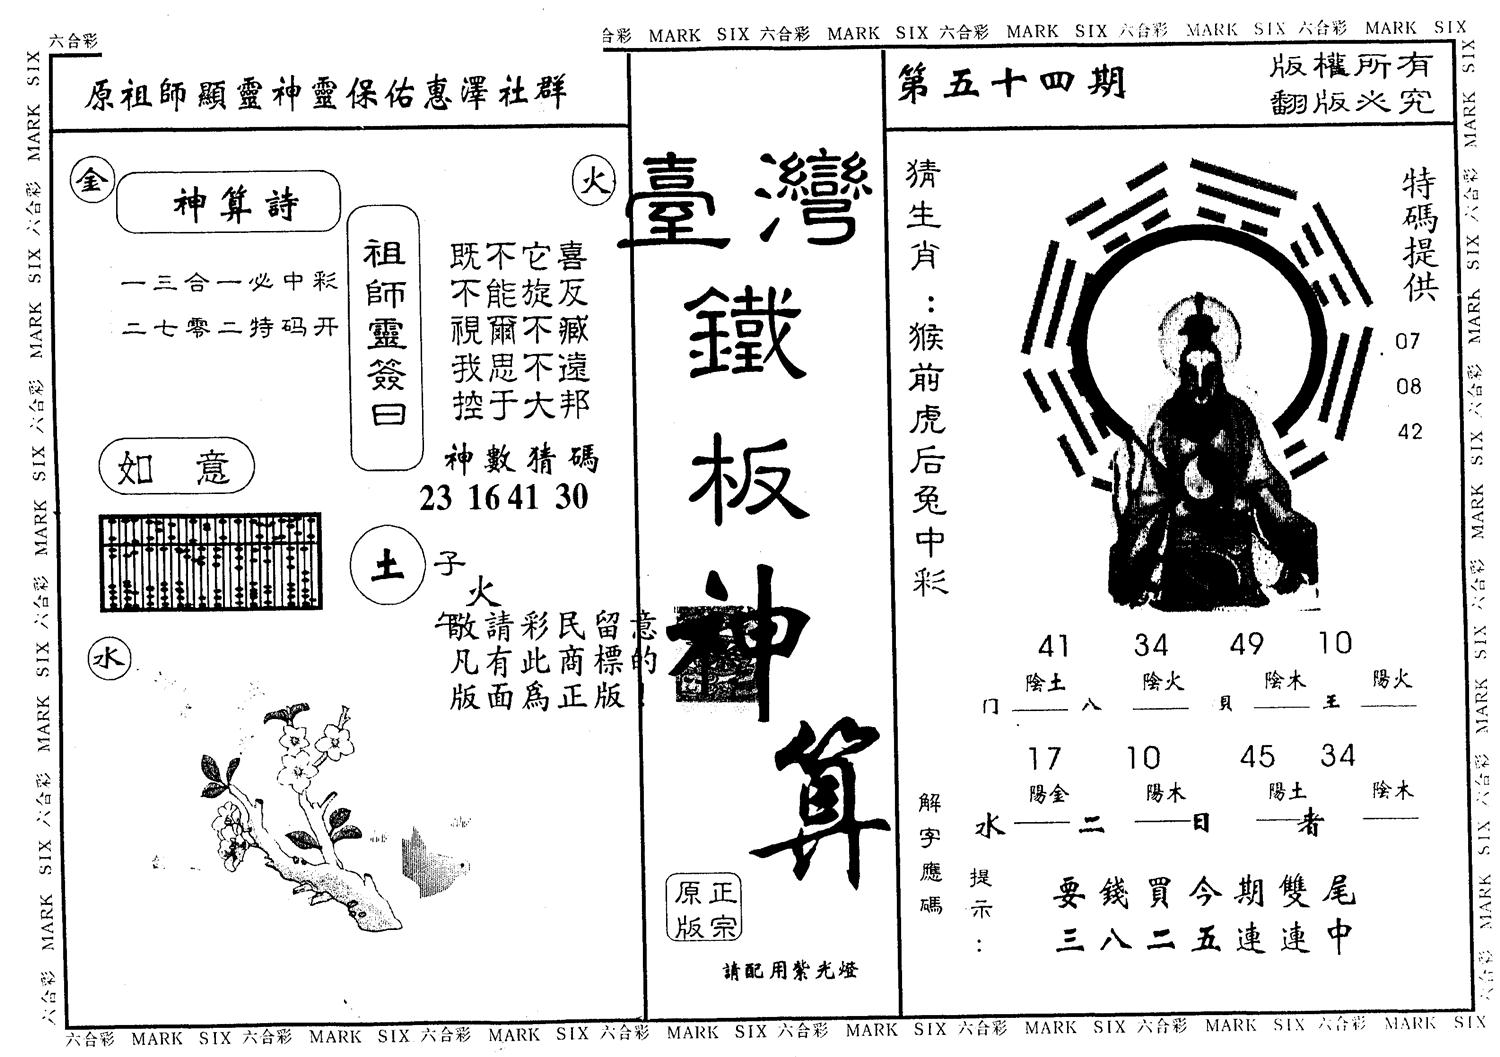 六合彩
合彩 MARK SIX 六合彩 MARK SIX 六合彩 MARK SIX 六合彩 MARK SIX 六合彩 MARK SIX
原祖師顯靈神靈保佑惠澤社群
第五十四期
版權所有
翻版必究
金
神算詩
火
一三合一必中彩
二七零二特码开
祖師靈簽曰
既不它喜
不能旋反
視爾不臧
我思不遠
控于大邦
神數猜碼
23 16 41 30
如意
土
子
火
午
敬請彩民留意
凡有此商標的
版面爲正版！
水
臺灣
鐵
板
神
算
正宗
原版
請配用紫光燈
猜生肖：猴前虎后兔中彩
特碼提供
07
08
42
41 34 49 10
陰土 陰火 陰木 陽火
门 八 貝 王
17 10 45 34
陽金 陽木 陽土 陰木
水 二 日 者
解字應碼
提示：
要錢買今期雙尾
三八二五連連中
六合彩 MARK SIX 六合彩 MARK SIX 六合彩 MARK SIX 六合彩 MARK SIX 六合彩 MARK SIX 六合彩 MARK SIX 六合彩 MARK SIX 六合彩 MARK SIX